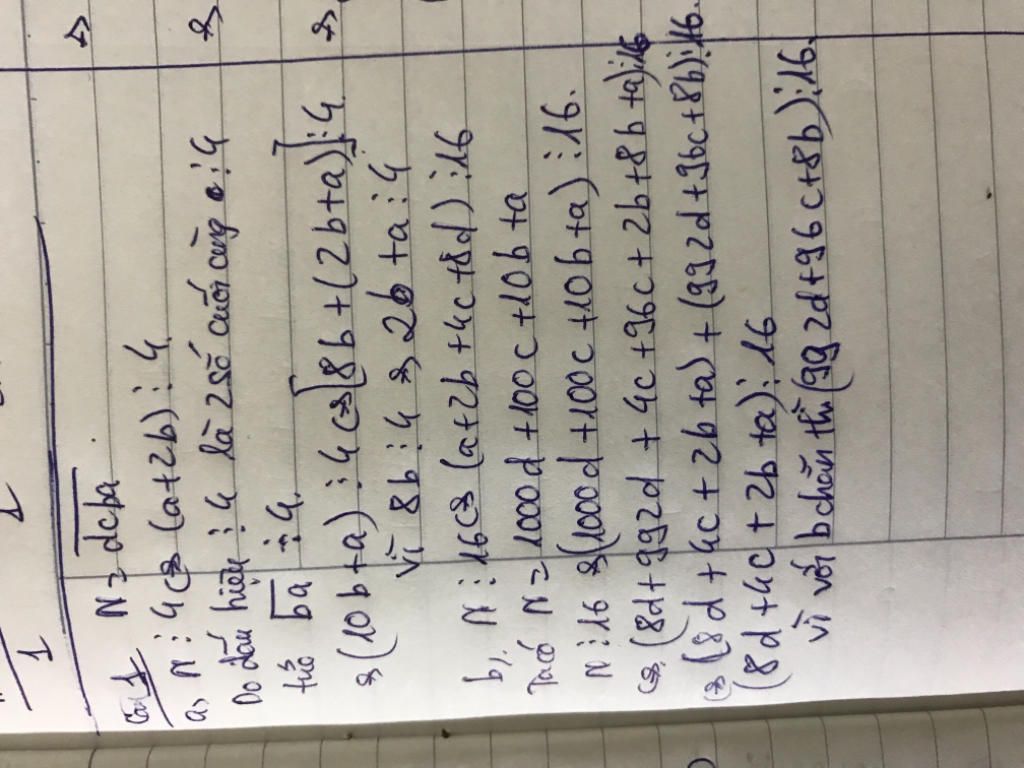 Câu 1 N = dcba
a, N ⋮ 4 <=> (a+2b) ⋮ 4
Do dấu hiệu ⋮ 4 là 2 số cuối cùng ⋮ 4
từ ba ⋮ 4
=> (10b+a) ⋮ 4 <=> [8b+(2b+a)] ⋮ 4
Vì 8b ⋮ 4 => 2b+a ⋮ 4
b, N ⋮ 16 <=> (a+2b+4c+8d) ⋮ 16
Ta có N = 1000d+100c+10b+a
N ⋮ 16 => (1000d+100c+10b+a) ⋮ 16.
<=> (8d+992d+4c+96c+2b+8b+a) ⋮ 16
<=> (8d+4c+2b+a)+(992d+96c+8b) ⋮ 16.
(8d+4c+2b+a) ⋮ 16
vì với b chẵn thì (992d+96c+8b) ⋮ 16.